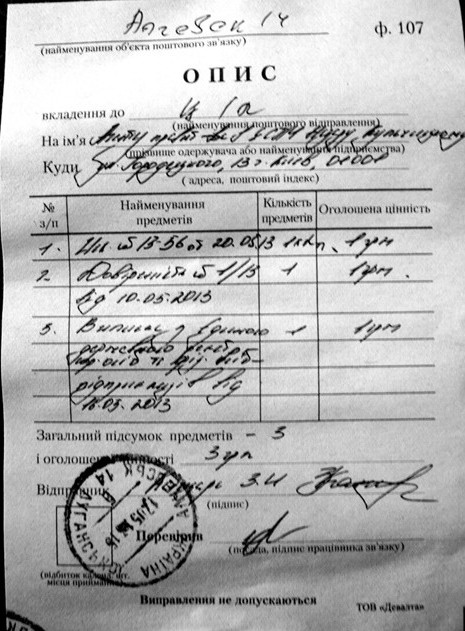 Алчевск 14
ф. 107
(найменування об'єкта поштового зв'язку)
ОПИС
вкладення до ц/п
(найменування поштового відправлення)
На ім'я
(прізвище одержувача або найменування підприємства)
Куди ул. Городецкого, 13 г. Киев,
(адреса, поштовий індекс)
№ з/п Найменування предметів Кількість предметів Оголошена цінність
1. № 13-56 от 20.05.13 1 1 грн
2. Довіреність № 1/13 1 1 грн.
від 10.05.2013
3. Виписка з Єдиного 1 1 грн
державного
та фіз. осіб-
підприємців від
16.05.2013
Загальний підсумок предметів – 3
і оголошеної цінності 3 грн
Відправник З.И.
(підпис)
Перевірив
(посада, підпис працівника зв'язку)
(відбиток календ. шт.
місця приймання)
УКРАЇНА
АЛЧЕВСЬК 14
ЛУГАНСЬК
Виправлення не допускаються
ТОВ «Девалта»